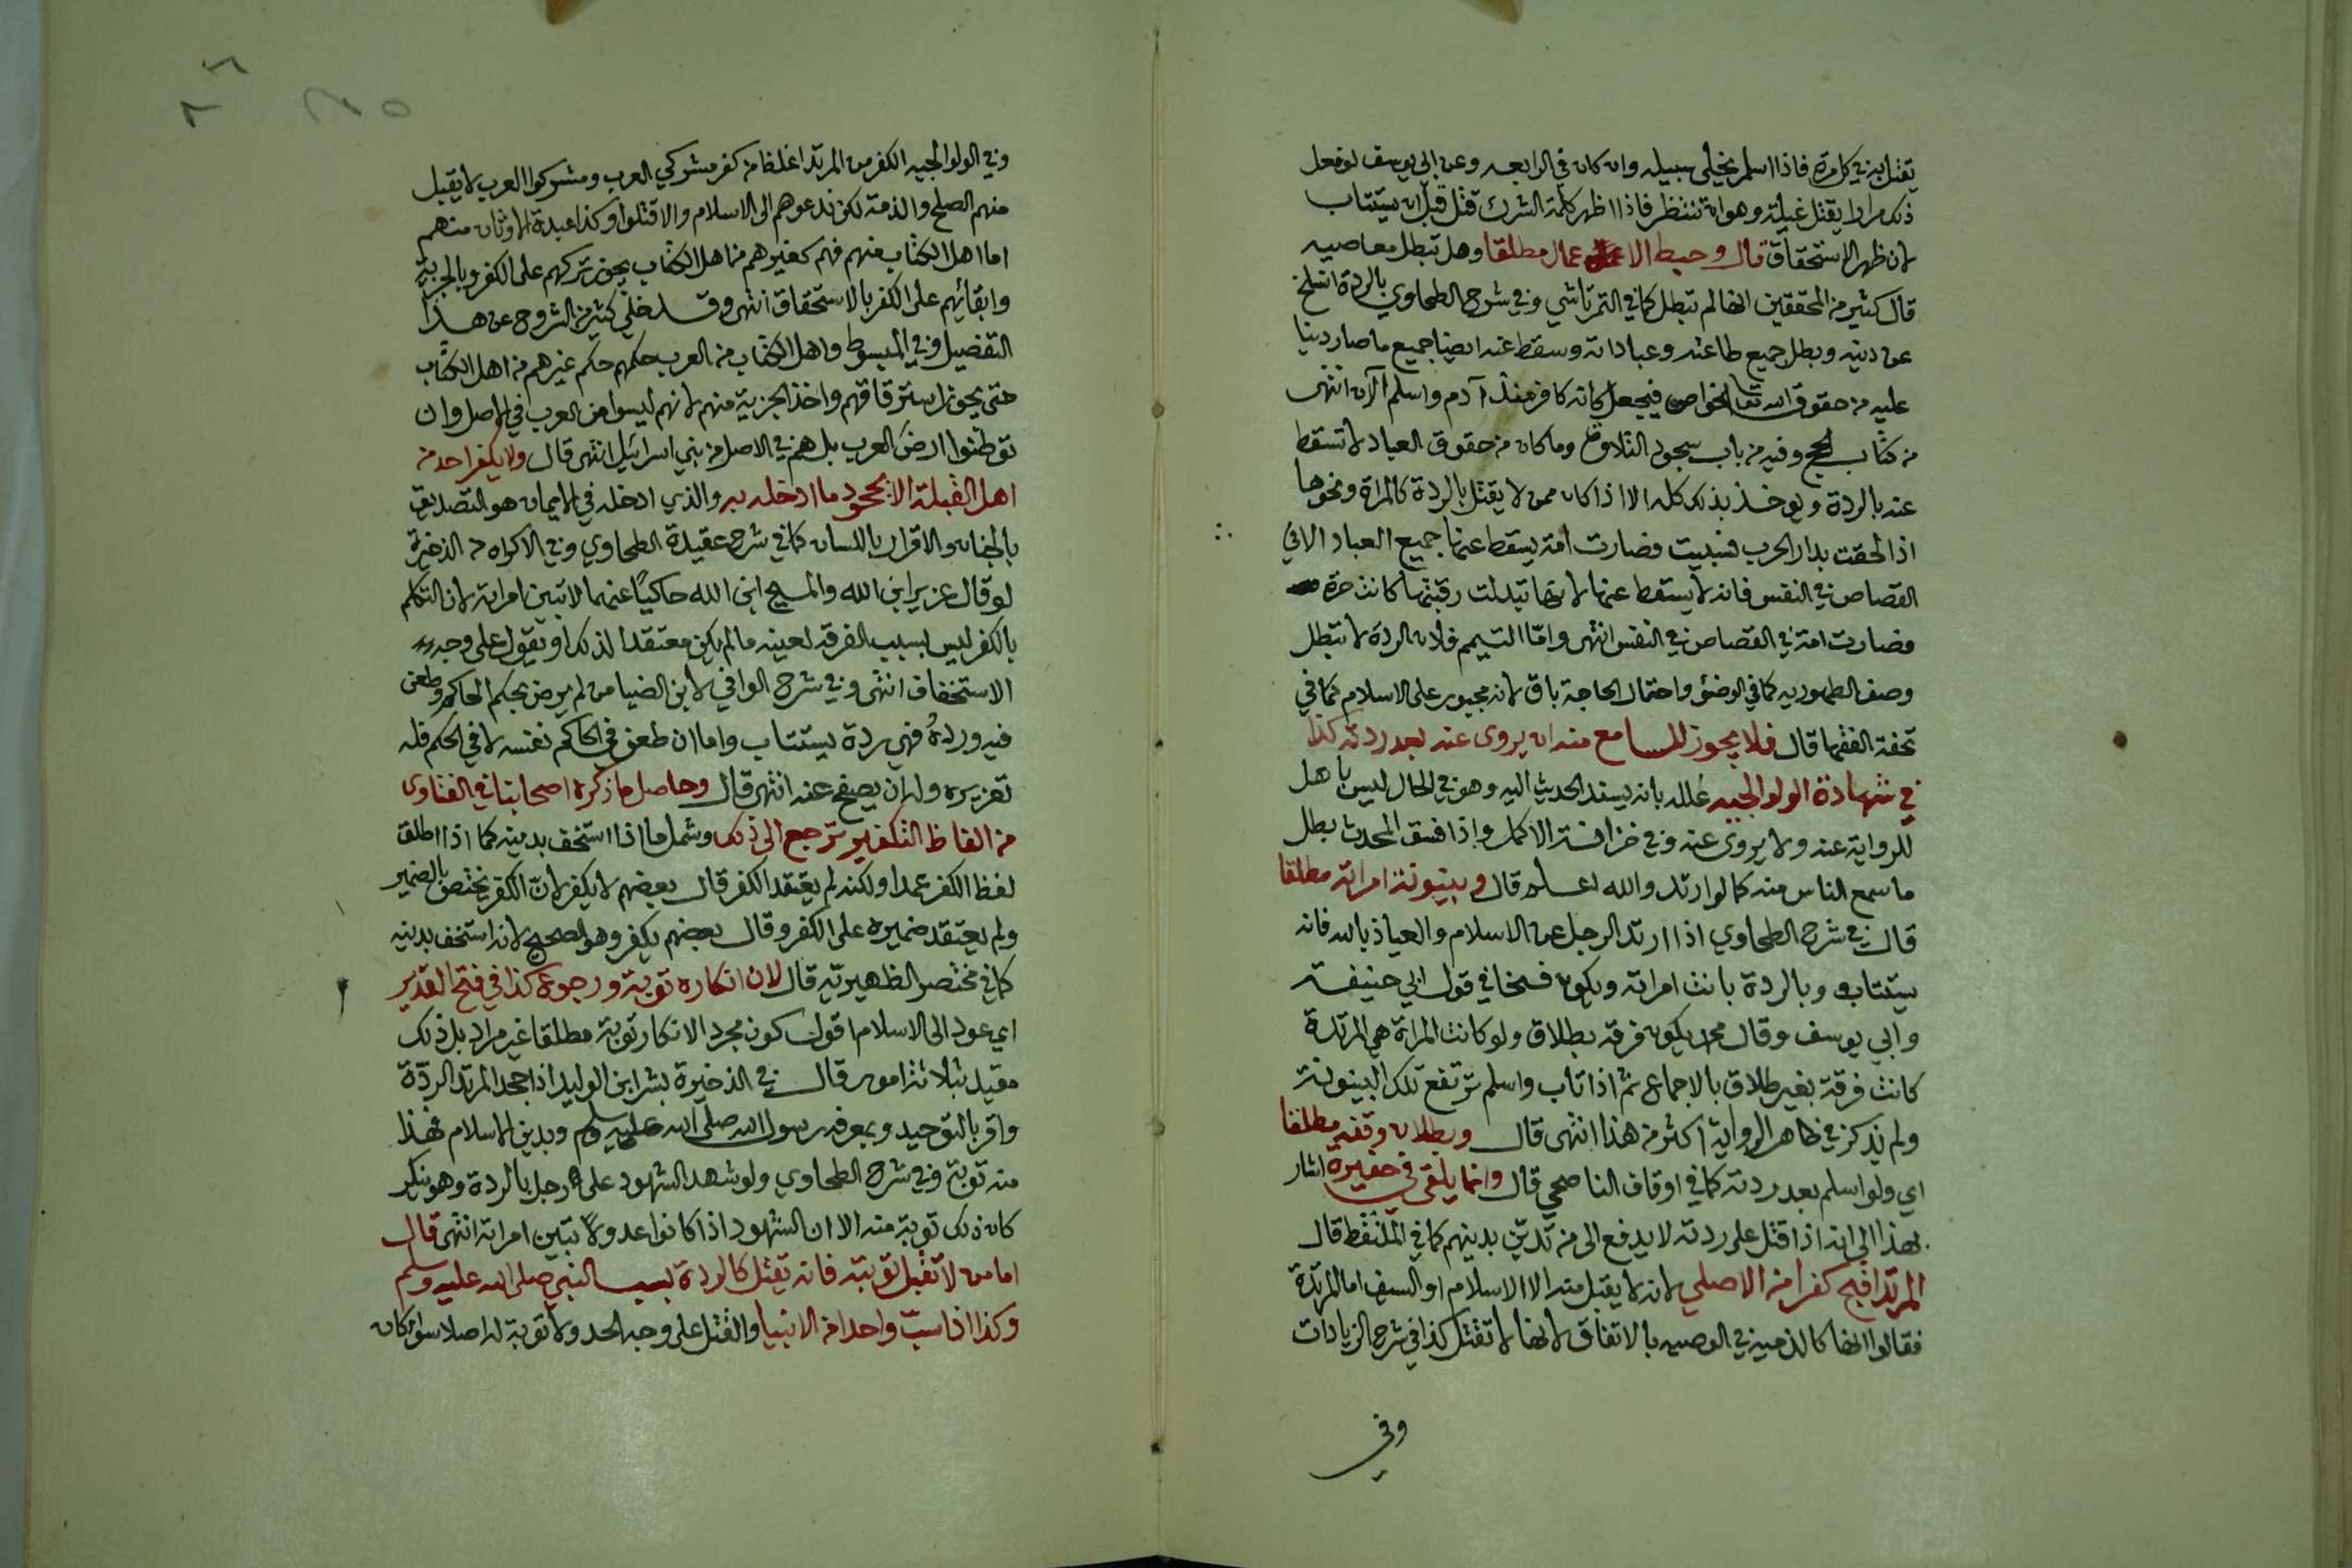 يقتل به في كل مرة فاذا اسلم يخلى سبيله وان كان في الرابعه وعن ابي يوسف لو فعل
ذلك مرارا يقتل غيلة وهو ان ننتظر فاذا اظهر كلمة الشرك قتل قبل ان يستتاب
لان ظهر الاستحقاق قال وحبط الاعمال مطلقا وهل تبطل معاصيه
قال كثير من المحققين انها لم تبطل كما في التمرتاشي وفي شرح الطحاوي بالردة انسلخ
عن دينه وبطل جميع طاعته وعباداته وسقط عنه ايضا جميع ما صار دينا
عليه من حقوق الله تعا الخواص فيجعل كانه كافر منذ آدم واسلم الآن انتهى
من كتاب الحج وفيه من باب سجود التلاوة وما كان من حقوق العباد لا تسقط
عنه بالردة ويوخذ بذلك كله الا اذا كان ممن لا يقتل بالردة كالمراة ونحوها
اذا لحقت بدار الحرب فسبيت فصارت امة يسقط عنها جميع العباد الا في
القصاص في النفس فانه لا يسقط عنها لانها تبدلت رقبتها كانت حرة
فصارت امة في القصاص في النفس انتهى واما التيمم فلان الردة لا تبطل
وصف الطهوريه كما في الوضؤ واحتمال الحاجة باق لانه مجبور على الاسلام كما في
تحفة الفقها قال فلا يجوز للسامع منه ان يروى عنه بعد ردته كذا
في شهادة الولوالجيه علله بانه يسند الحديث اليه وهو في الحال ليس باهل
للرواية عنه ولا يروى عنه وفي خزانة الاكمل واذا فسق المحدث بطل
ما سمع الناس منه كما لو ارتد والله اعلم قال وبينونة امراته مطلقا
قال في شرح الطحاوي اذا ارتد الرجل عن الاسلام والعياذ بالله فانه
يستتاب وبالردة بانت امراته ويكون فسخا في قول ابي حنيفة
وابي يوسف وقال محمد يكون فرقه بطلاق ولو كانت المراة هي المرتدة
كانت فرقة بغير طلاق بالاجماع ثم اذا تاب واسلم ترتفع تلك البينونة
ولم يذكر في ظاهر الرواية اكثر من هذا انتهى قال وبطلان وقفه مطلقا
اي ولو اسلم بعد ردته كما في اوقاف الناصحي قال وانما يلقى في حفيرة اشار
بهذا الى انه اذا قتل على ردته لا يدفع الى من تدين بدينهم كما في الملتقط قال
المرتد اقبح كفرا من الاصلي لانه لا يقبل منه الا الاسلام او السيف اما المرتدة
فقالوا انها كالذميه في الوصيه بالاتفاق لانها لا تقتل كذا في شرح الزيادات
وفي
وفي الولوالجيه الكفر من المرتد اغلظ من كفر مشركي العرب ومشركوا العرب لا يقبل
منهم الصلح والذمة لكن ندعوهم الى الاسلام والا قتلوا وكذا عبدة الاوثان منهم
اما اهل الكتاب منهم فهم كغيرهم من اهل الكتاب يجوز تركهم على الكفر وبالجزية
وابقائهم على الكفر بالاستحقاق انتهى وقد خلي كثير من الشروح عن هذا
التفصيل وفي المبسوط واهل الكتاب من العرب حكمهم حكم غيرهم من اهل الكتاب
حتى يجوز استرقاقهم واخذ الجزية منهم لانهم ليسوا من العرب في الاصل وان
توطنوا ارض العرب بل هم في الاصل من بني اسرائيل انتهى قال ولا يكفر احد من
اهل القبلة الا بجحود ما ادخله به والذي ادخله في الايمان هو التصديق
بالجنان والاقرار باللسان كما في شرح عقيدة الطحاوي وفي الاكراه من الذخيرة
لو قال عزير ابن الله والمسيح ابن الله حاكيا عنهما لا تبين امراته لان التكلم
بالكفر ليس بسبب الفرقه لعينه ما لم يكن معتقدا لذلك او يقول على وجه
الاستخفاف انتهى وفي شرح الوافي لابن الضيا من لم يرض بحكم الحاكم وطعن
فيه ورده فهي ردة يستتاب واما ان طعن في الحاكم نفسه لا في الحكم فله
تعزيره وله ان يصفح عنه انتهى قال وحاصل ما ذكره اصحابنا في الفتاوى
من الفاظ التكفير ترجع الى ذلك وشمل ما اذا استخف بدينه كما اذا اطلق
لفظ الكفر عمدا ولكنه لم يعتقد الكفر قال بعضهم لا يكفر لان الكفر يختص بالضمير
ولم يعتقد ضميره على الكفر وقال بعضهم يكفر وهو الصحيح لانه استخف بدينه
كما في مختصر الظهيرية قال لان انكاره توبة ورجوع كذا في فتح القدير
اي عود الى الاسلام اقول كون مجرد الانكار توبة مطلقا غير مراد بل ذلك
مقيد بثلاثة امور قال في الذخيرة بشر ابن الوليد اذا جحد المرتد الردة
واقر بالتوحيد وبمعرفه رسول الله صلى الله عليه وسلم وبدين الاسلام فهذا
منه توبة وفي شرح الطحاوي ولو شهد الشهود على رجل بالردة وهو ينكر
كان ذلك توبة منه الا ان الشهود اذا كانوا عدولا تبين امراته انتهى قال
اما من لا تقبل توبته فانه يقتل كالردة بسب النبي صلى الله عليه وسلم
وكذا اذا سب واحدا من الانبيا والقتل على وجه الحد ولا توبة له اصلا سواء كان